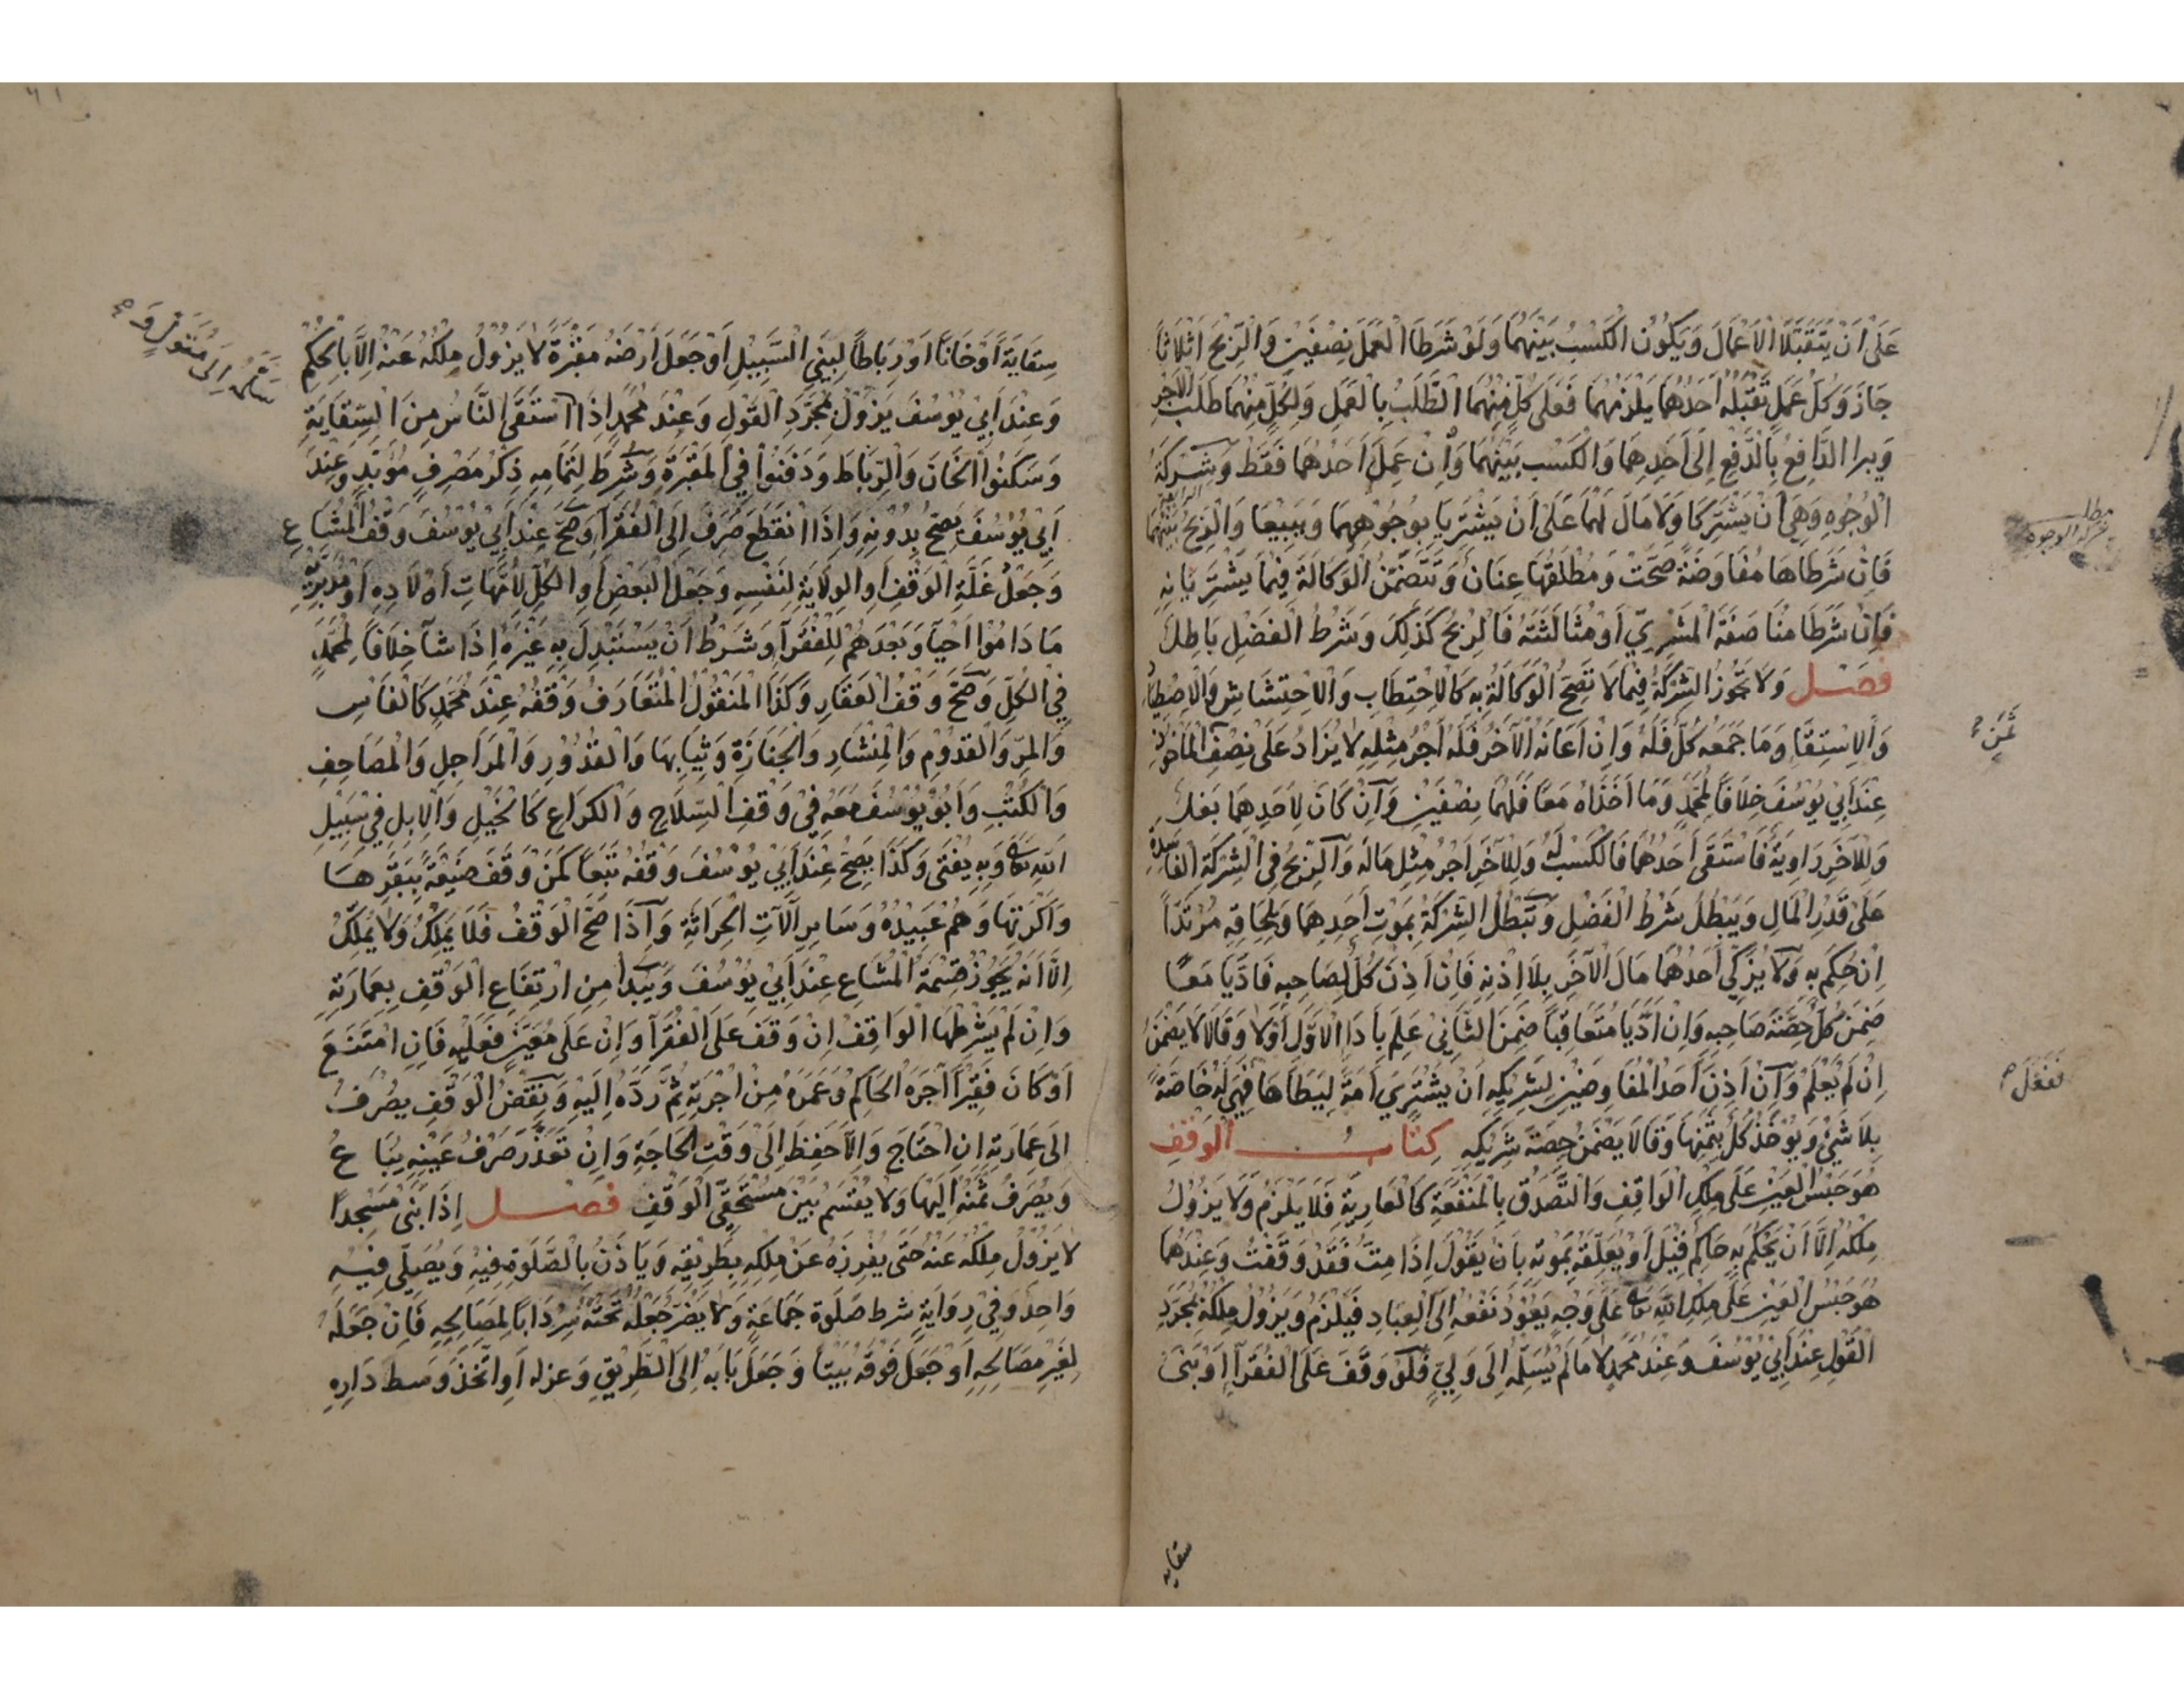 عَلَى اَنْ يَتَقَبَّلَا الْاَعْمَالَ وَيَكُونُ الْكَسْبُ بَيْنَهُمَا وَلَوْ شَرَطَا الْعَمَلَ نِصْفَيْنِ وَالرِّبْحَ اَثْلَاثًا
جَازَ وَكُلُّ عَمَلٍ تَقَبَّلَهُ اَحَدُهُمَا يَلْزَمُهُمَا فَعَلَى كُلٍّ مِنْهُمَا الطَّلَبُ بِالْعَمَلِ وَلِكُلٍّ مِنْهُمَا طَلَبُ الْاَجْرِ
وَيبرا الدَّافِعُ بِالدَّفْعِ اِلَى اَحَدِهِمَا وَالْكَسْب بَيْنَهُمَا وَاِنْ عَمِلَ اَحَدُهُمَا فَقَطْ وَشَرِكَةُ
الْوُجُوهِ وَهِيَ اَنْ يَشْتَرِكَا وَلَا مَالَ لَهُمَا عَلَى اَنْ يَشْتَرِيَا بِوُجُوهِهِمَا وَيَبِيعَا وَالرِّبْحُ بَيْنَهُمَا
فَاِنْ شَرَطَاهَا مُفَاوَضَةً صَحَّتْ وَمُطْلَقُهَا عِنَانٌ وَتَتَضَمَّنُ الْوَكَالَةَ فِيمَا يَشْتَرِيَانِهِ
فَاِنْ شَرَطَا مُنَاصَفَةَ الْمُشْتَرِي اَوْ مُثَالَثَتَهُ فَالرِّبْحُ كَذَلِكَ وَشَرْطُ الْفَضْلِ بَاطِلٌ
فصل وَلَا تَجُوزُ الشِّرْكَةُ فِيمَا لَا تَصِحُّ الْوَكَالَةُ بِهِ كَالْاِحْتِطَابِ وَالْاِحْتِشَاشِ وَالْاِصْطِيَادِ
وَالْاِسْتِقَاءِ وَمَا جَمَعَهُ كُلٌّ فَلَهُ وَاِنْ اَعَانَهُ الْآخَرُ فَلَهُ اَجْرُ مِثْلِهِ لَا يُزَادُ عَلَى نِصْفِ الْمَاخُوذِ
عِنْدَ اَبِي يُوسُفَ خِلَافًا لِمُحَمَّدٍ وَمَا اَخَذَاهُ مَعًا فَلَهُمَا نِصْفَيْنِ وَاِنْ كَانَ لِاَحَدِهِمَا بَغْلٌ
وَلِلْآخَرِ رَاوِيَةٌ فَاسْتَقَى اَحَدُهُمَا فَالْكَسْبُ لَهُ وَلِلْآخَرِ اَجْرُ مِثْلِ مَالَه وَالرِّبْحُ فِي الشِّرْكَةِ الْفَاسِدَةِ
عَلَى قَدْرِ الْمَالِ وَيَبْطُلُ شَرْطُ الْفَضْلِ وَتَبْطُلُ الشِّرْكَةُ بِمَوْتِ اَحَدِهِمَا وَبِلِحَاقِهِ مُرْتَدًّا
اِنْ حُكِمَ بِهِ وَلَا يُزَكِّي اَحَدُهُمَا مَالَ الْآخَرِ بِلَا اِذْنِهِ فَاِنْ اَذِنَ كُلٌّ لِصَاحِبِهِ فَادَّيَا مَعًا
ضَمِنَ كُلٌّ حِصَّةَ صَاحِبِهِ وَاِنْ اَدَّيَا مُتَعَاقِبًا ضَمِنَ الثَّانِي عَلِمَ بِاَدَاءِ الْاَوَّلِ اَوْ لَا وَقَالَا لَا يَضْمَنُ
اِنْ لَمْ يَعْلَمْ وَاِنْ اَذِنَ اَحَدُ الْمُفَاوِضَيْنِ لِشَرِيكِهِ اَنْ يَشْتَرِيَ اَمَةً لِيَطَأَهَا فَهِيَ لَهُ خَاصَّةً
بِلَا شَيْءٍ وَيُوْخَذُ كُلٌّ بِثَمَنِهَا وَقَالَا يَضْمَنُ حِصَّةَ شَرِيكِهِ كِتَابُ الْوَقْفِ
هُوَ حَبْسُ الْعَيْنِ عَلَى مِلْكِ الْوَاقِفِ وَالتَّصَدُّقُ بِالْمَنْفَعَةِ كَالْعَارِيَّةِ فَلَا يَلْزَمُ وَلَا يَزُولُ
مِلْكُهُ اِلَّا اَنْ يَحْكُمَ بِهِ حَاكِمٌ قِيلَ اَوْ يُعَلِّقَهُ بِمَوْتِهِ بِاَنْ يَقُولَ اِذَا مِتُّ فَقَدْ وَقَفْتُ وَعِنْدَهُمَا
هُوَ حَبْسُ الْعَيْنِ عَلَى مِلْكِ اللّٰهِ تَعَالَى عَلَى وَجْهٍ يَعُودُ نَفْعُهُ اِلَى الْعِبَادِ فَيَلْزَمُ وَيَزُولُ مِلْكُهُ بِمُجَرَّدِ
الْقَوْلِ عِنْدَ اَبِي يُوسُفَ وَعِنْدَ مُحَمَّدٍ لَا مَا لَمْ يُسَلِّمْهُ اِلَى وَلِيٍّ فَلَوْ وَقَفَ عَلَى الْفُقَرَاءِ اَوْ بَنَى
سقايه
مطلب
شركة الوجوه
ثَمَنِ
نَفْعَلَ
سِقَايَةً اَوْ خَانًا اَوْ رِبَاطًا لِبَنِي السَّبِيلِ اَوْ جَعَلَ اَرْضَهُ مَقْبَرَةً لَا يَزُولُ مِلْكُهُ عَنْهُ اِلَّا بِالْحُكْمِ
وَعِنْدَ اَبِي يُوسُفَ يَزُولُ بِمُجَرَّدِ الْقَوْلِ وَعِنْدَ مُحَمَّدٍ اِذَا اسْتَقَى النَّاسُ مِنَ السِّقَايَةِ
وَسَكَنُوا الْخَانَ وَالرِّبَاطَ وَدَفَنُوا فِي الْمَقْبَرَةِ وَشُرِطَ لِتَمَامِهِ ذِكْرُ مَصْرِفٍ مُؤَبَّدٍ وَعِنْدَ
اَبِي يُوسُفَ يَصِحُّ بِدُونِهِ وَاِذَا انْقَطَعَ صُرِفَ اِلَى الْفُقَرَاءِ وَصَحَّ عِنْدَ اَبِي يُوسُفَ وَقْفُ الْمُشَاعِ
وَجَعْلُ غَلَّةِ الْوَقْفِ اَوِ الْوِلَايَةِ لِنَفْسِهِ وَجَعْلُ الْبَعْضِ اَوِ الْكُلِّ لِاُمَّهَاتِ اَوْلَادِهِ اَوْ مُدَبَّرِيهِ
مَا دَامُوا اَحْيَاءً وَبَعْدَهُمْ لِلْفُقَرَاءِ وَشَرْطُ اَنْ يَسْتَبْدِلَ بِهِ غَيْرَهُ اِذَا شَاءَ خِلَافًا لِمُحَمَّدٍ
فِي الْكُلِّ وَصَحَّ وَقْفُ الْعَقَارِ وَكَذَا الْمَنْقُولُ الْمُتَعَارَفُ وَقْفُهُ عِنْدَ مُحَمَّدٍ كَالْفَاسِ
وَالْمَرِّ وَالْقَدُومِ وَالْمِنْشَارِ وَالْجَنَازَةِ وَثِيَابِهَا وَالْقُدُورِ وَالْمَرَاجِلِ وَالْمَصَاحِفِ
وَالْكُتُبِ وَاَبُو يُوسُفَ مَعَهُ فِي وَقْفِ السِّلَاحِ وَالْكُرَاعِ كَالْخَيْلِ وَالْاِبِلِ فِي سَبِيلِ
اللّٰهِ تَعَالَى وَبِهِ يُفْتَى وَكَذَا يَصِحُّ عِنْدَ اَبِي يُوسُفَ وَقْفُهُ تَبَعًا كَمَنْ وَقَفَ ضَيْعَةً بِبَقَرِهَا
وَاَكَرَتِهَا وَهُمْ عَبِيدُهُ وَسَايِرِ آلَاتِ الْحِرَاثَةِ وَاِذَا صَحَّ الْوَقْفُ فَلَا يُمْلَكُ وَلَا يُمَلَّكُ
اِلَّا اَنَّهُ يَجُوزُ قِسْمَةُ الْمُشَاعِ عِنْدَ اَبِي يُوسُفَ وَيُبْدَأُ مِنِ ارْتِفَاعِ الْوَقْفِ بِعِمَارَتِهِ
وَاِنْ لَمْ يَشْرِطْهَا الْوَاقِفُ اِنْ وَقَفَ عَلَى الْفُقَرَاءِ وَاِنْ عَلَى مُعَيَّنٍ فَعَلَيْهِ فَاِنِ امْتَنَعَ
اَوْ كَانَ فَقِيرًا آجَرَهُ الْحَاكِمُ وَعَمَرَهُ مِنْ اُجْرَتِهِ ثُمَّ رَدَّهُ اِلَيْهِ وَنَقْضُ الْوَقْفِ يُصْرَفُ
اِلَى عِمَارَتِهِ اِنِ احْتَاجَ وَاِلَّا حَفِظَ اِلَى وَقْتِ الْحَاجَةِ وَاِنْ تَعَذَّرَ صَرْفُ عَيْنِهِ يُبَاعُ
وَيُصْرَفُ ثَمَنُهُ اِلَيْهَا وَلَا يُقْسَمُ بَيْنَ مُسْتَحِقِّي الْوَقْفِ فصل اِذَا بَنَى مَسْجِدًا
لَا يَزُولُ مِلْكُهُ عَنْهُ حَتَّى يُفْرِزَهُ عَنْ مِلْكِهِ بِطَرِيقِهِ وَيَاذَنُ بِالصَّلٰوةِ فِيهِ وَيُصَلِّي فِيهِ
وَاحِدٌ وَفِي رِوَايَةٍ شرط صَلٰوة جَمَاعَةٍ وَلَا يَضُرُّ جَعْلُهُ تَحْتَهُ سِرْدَابًا لِمَصَالِحِهِ فَاِنْ جَعَلَهُ
لِغَيْرِ مَصَالِحِهِ اَوْ جَعَلَ فَوْقَهُ بَيْتًا وَجَعَلَ بَابَهُ اِلَى الطَّرِيقِ وَعزله اَوِ اتَّخَذَ وَسط دَارِهِ